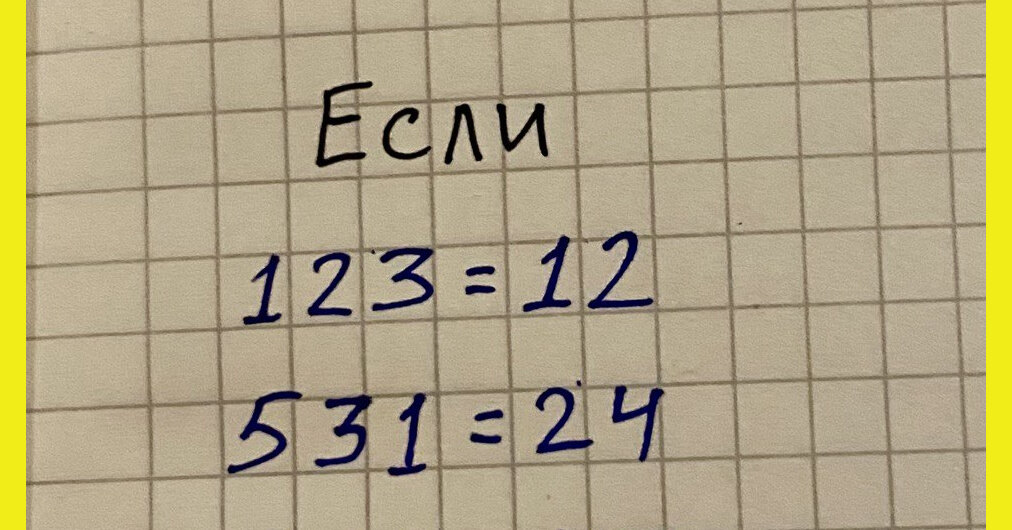 Если
123=12
531=24